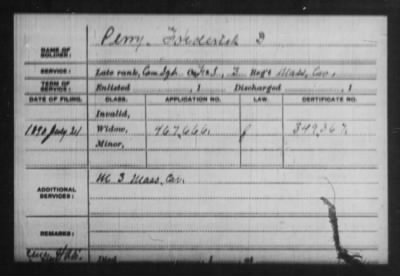 NAME OF SOLDIER: Perry, Frederick D
SERVICE: Late rank, Com Sgt. Co. F & S, 3 Reg't Mass, Cav.,
TERM OF SERVICE: Enlisted , 1 Discharged , 1
DATE OF FILING. CLASS. APPLICATION NO. LAW. CERTIFICATE NO.
Invalid,
1890 July 21 Widow, 467,666 349,367.
Minor,
ADDITIONAL SERVICES: M 3 Mass, Cav.
REMARKS:
Died , 1 , at